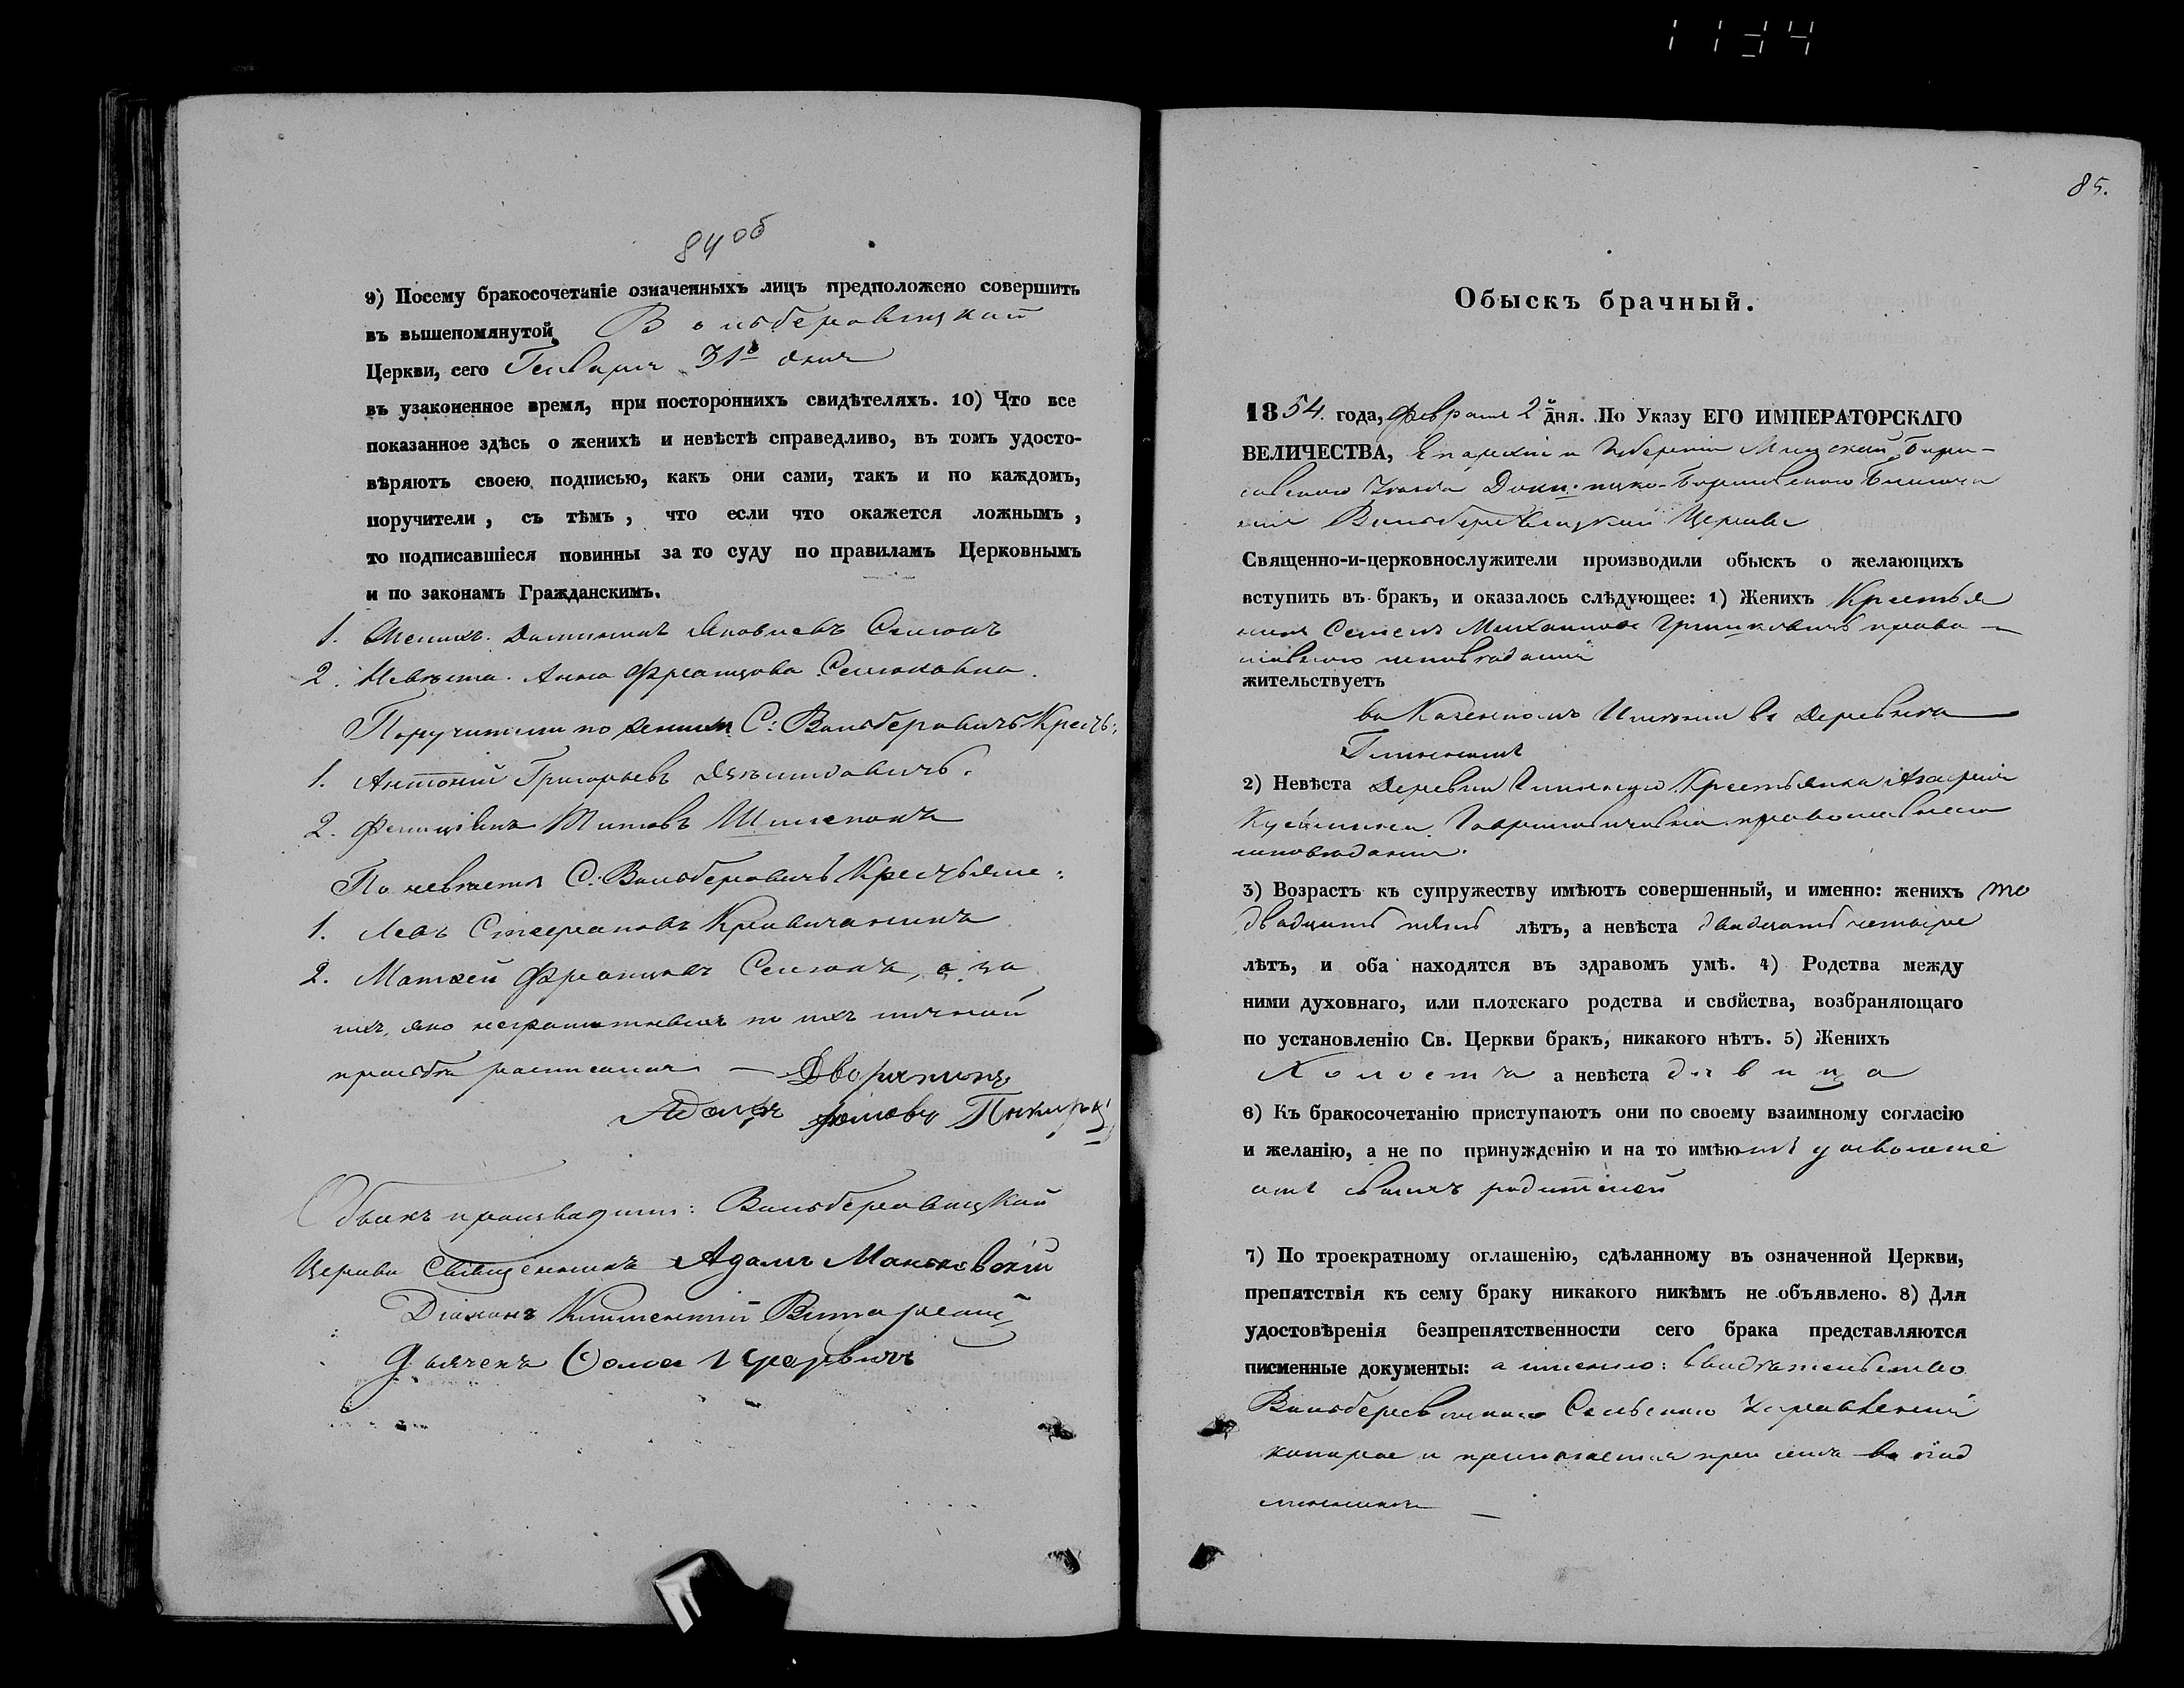 1134
84 об
9) Посему бракосочетаніе означенныхъ лицъ предположено совершить
въ вышепомянутой Вольберовицкой
Церкви, сего Генваря 31го дня
въ узаконенное время, при постороннихъ свидѣтеляхъ. 10) Что все
показанное здѣсь о женихѣ и невѣстѣ справедливо, въ томъ удосто-
вѣряютъ своею подписью, какъ они сами, такъ и по каждомъ,
поручители, съ тѣмъ, что если что окажется ложнымъ,
то подписавшіеся повинны за то суду по правиламъ Церковнымъ
и по законамъ Гражданскимъ.
1. Женихъ. Яковлевъ Селюкъ
2. Невѣста. Анна Францова Селюковна.
Поручители по женихѣ С: Вольберовичъ Крестъ:
1. Антоній Григорьевъ
2. Титовъ
По невѣстѣ С. Вольберовичъ Крестьяне:
1. Левъ Стефановъ
2. Матвей Францовъ Селюкъ, а за
ихъ, яко неграмотныхъ по ихъ личной
прозьбѣ росписался — Дворянинъ
Адамъ
Обыскъ производили: Вольберовицкой
Церкви Священникъ Адамъ Маньковскій
Діаконъ Климентій
Дьячекъ Фома
85.
Обыскъ брачный.
1854. года, Февраля 2го дня. По Указу ЕГО ИМПЕРАТОРСКАГО
ВЕЛИЧЕСТВА, Епархіи и Губерніи Минской, Бори-
совского Уезда Благочи
нія Вольберовицкой Церкви
Священно-и-церковнослужители производили обыскъ о желающихъ
вступить въ бракъ, и оказалось слѣдующее: 1) Женихъ Крестья
нинъ Семенъ Михайловъ Гришкевичъ право —
славного исповѣданія
жительствуетъ
въ Казенномъ Имѣніи въ Деревнѣ
2) Невѣста Деревни Крестьянка Агафія
православного
исповѣданія.
3) Возрастъ къ супружеству имѣютъ совершенный, и именно: женихъ
двадцать пять лѣтъ, а невѣста двадцать четыре
лѣтъ, и оба находятся въ здравомъ умѣ. 4) Родства между
ними духовнаго, или плотскаго родства и свойства, возбраняющаго
по установленію Св. Церкви бракъ, никакого нѣтъ. 5) Женихъ
Холостъ а невѣста дѣвица
6) Къ бракосочетанію приступаютъ они по своему взаимному согласію
и желанію, а не по принужденію и на то имѣютъ дозволеніе
отъ своихъ родителей
7) По троекратному оглашенію, сдѣланному въ означенной Церкви,
препятствія къ сему браку никакого никѣмъ не объявлено. 8) Для
удостовѣренія безпрепятственности сего брака представляются
писменные документы: а именно: свидѣтельство
Сельского Управленія
которое и прилагается при семъ въ под
линникѣ —